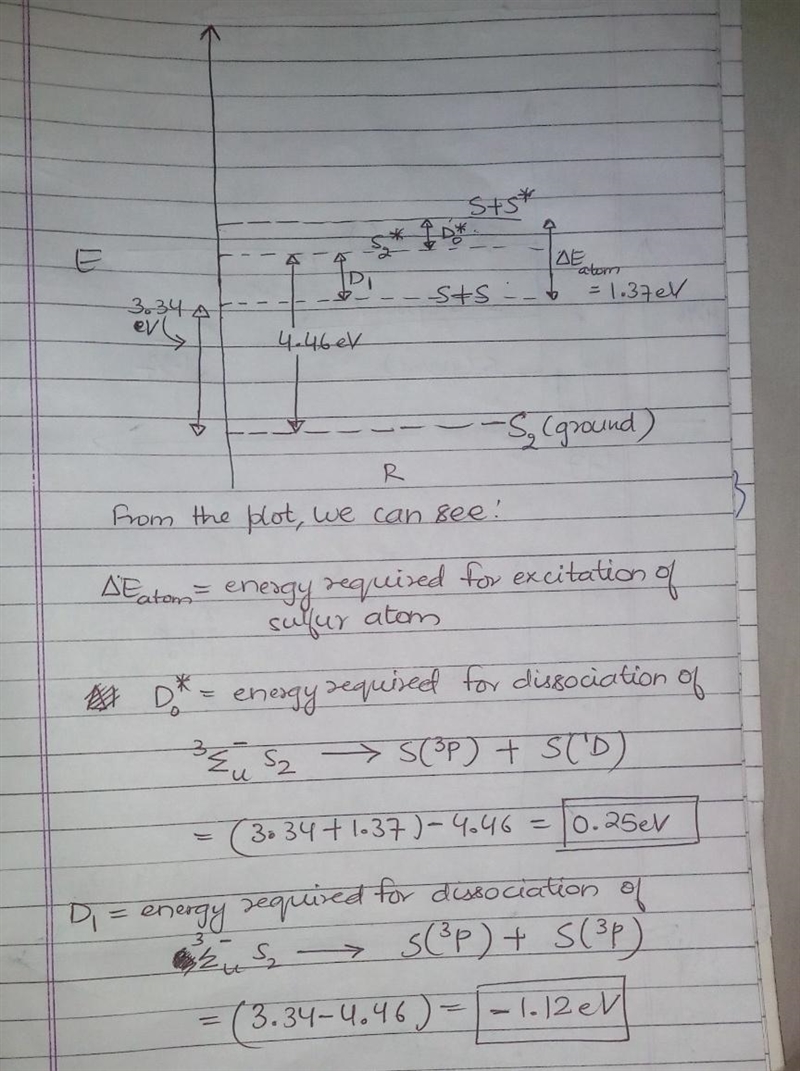 S+S*
S₂* D₀*
E
D₁
ΔE atom
= 1.37eV
3.34
eV
S+S
4.46eV
S₂ (ground)
R
From the plot, we can see:
ΔE atom = energy required for excitation of
sulfur atom
D₀* = energy required for dissociation of
³Σᵤ⁻ S₂ → S(³P) + S(¹D)
= (3.34+1.37)-4.46 = 0.25eV
D₁ = energy required for dissociation of
³Σᵤ⁻ S₂ → S(³P) + S(³P)
= (3.34-4.46) = -1.12eV